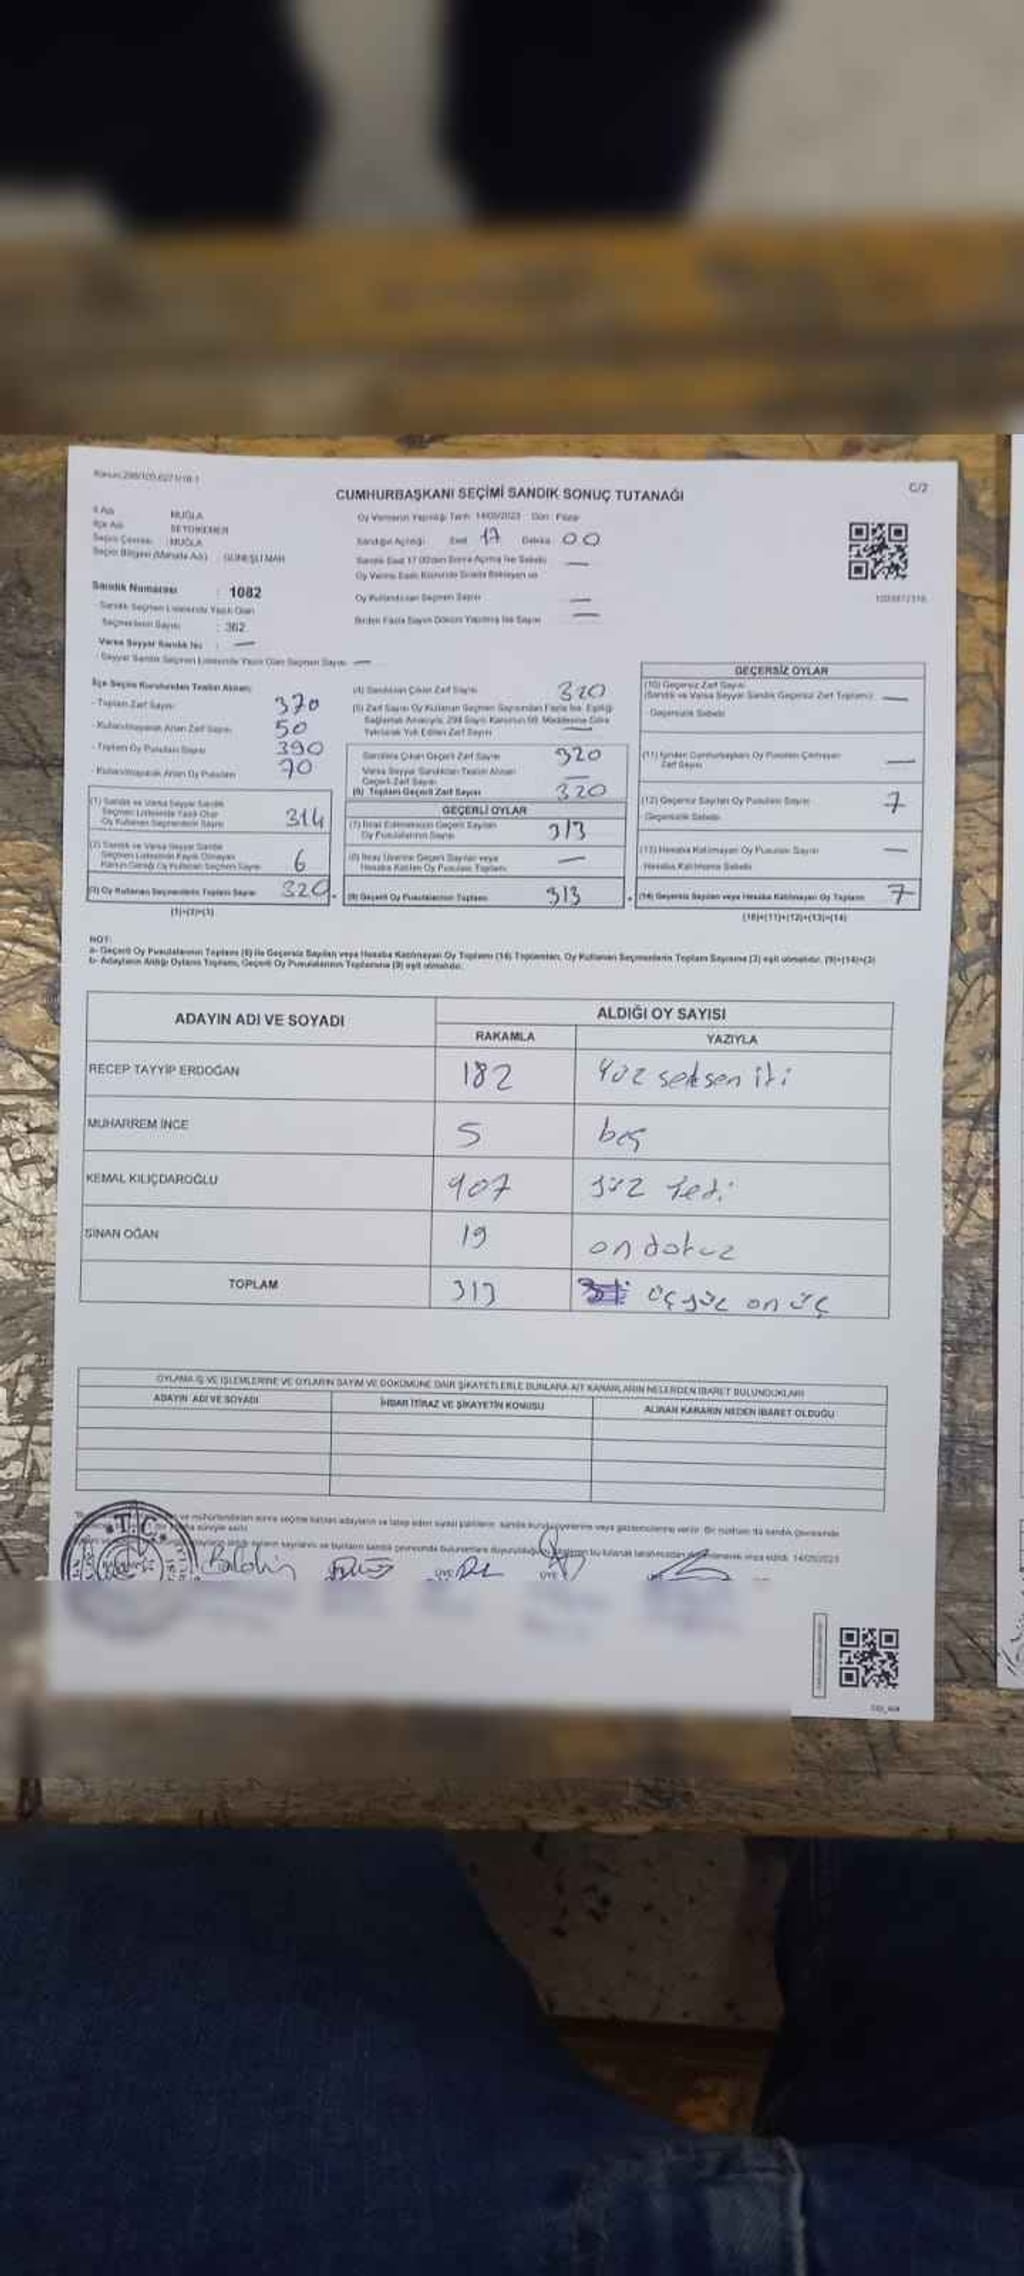 C/2
CUMHURBAŞKANI SEÇİMİ SANDIK SONUÇ TUTANAĞI
İl Adı MUĞLA
İlçe Adı SEYDİKEMER
Seçim Çevresi : MUĞLA
Seçim Bölgesi (Mahalle Adı) : GÜNEŞLİ MAH.
Oy Vermenin Yapıldığı Tarih: 14/05/2023 Gün : Pazar
Sandığın Açıldığı Saat 17 Dakika 00
Sandık Saat 17.00'den Sonra Açılmış İse Sebebi —
Oy Kullandırılan Seçmen Sayısı —
Birden Fazla Sayım Döküm Yapılmış İse Sayısı —
Sandık Numarası : 1082
Sandık Seçmen Listesinde Yazılı Olan
Seçmenlerin Sayısı : 362
Varsa Seyyar Sandık No : —
Seyyar Sandık Seçmen Listesinde Yazılı Olan Seçmen Sayısı —
İlçe Seçim Kurulundan Teslim Alınan:
- Toplam Zarf Sayısı 370
- Kullanılmayarak Artan Zarf Sayısı 50
- Toplam Oy Pusulası Sayısı 390
- Kullanılmayarak Artan Oy Pusulası 70
(1) Sandık ve Varsa Seyyar Sandık
Seçmen Listesinde Yazılı Olup
Oy Kullanan Seçmenlerin Sayısı 314
(2) Sandık ve Varsa Seyyar Sandık
Seçmen Listesinde Kaydı Olmayan
Kanun Gereği Oy Kullanan Seçmen Sayısı 6
(3) Oy Kullanan Seçmenlerin Toplam Sayısı 320
(1)+(2)=(3)
(4) Sandıktan Çıkan Zarf Sayısı 320
(5) Zarf Sayısı Oy Kullanan Seçmen Sayısından Fazla İse, Eşitliği
Sağlamak Amacıyla, 298 Sayılı Kanunun 98. Maddesine Göre
Yakılarak Yok Edilen Zarf Sayısı —
Sandıkta Çıkan Geçerli Zarf Sayısı 320
Varsa Seyyar Sandıktan Teslim Alınan
Geçerli Zarf Sayısı —
(6) Toplam Geçerli Zarf Sayısı 320
GEÇERLİ OYLAR
(7) İtiraz Edilmeksizin Geçerli Sayılan
Oy Pusulalarının Sayısı 313
(8) İtiraz Üzerine Geçerli Sayılan veya
Hesaba Katılan Oy Pusulası Toplamı —
(9) Geçerli Oy Pusulalarının Toplamı 313
GEÇERSİZ OYLAR
(10) Geçersiz Zarf Sayısı
(Sandık ve Varsa Seyyar Sandık Geçersiz Zarf Toplamı) —
Geçersizlik Sebebi
(11) İçinden Cumhurbaşkanı Oy Pusulası Çıkmayan
Zarf Sayısı —
(12) Geçersiz Sayılan Oy Pusulası Sayısı 7
Geçersizlik Sebebi
(13) Hesaba Katılmayan Oy Pusulası Sayısı —
Hesaba Katılmama Sebebi
(14) Geçersiz Sayılan veya Hesaba Katılmayan Oy Toplamı 7
(10)+(11)+(12)+(13)=(14)
NOT:
a- Geçerli Oy Pusulalarının Toplamı (9) ile Geçersiz Sayılan veya Hesaba Katılmayan Oy Toplamı (14) Toplamları, Oy Kullanan Seçmenlerin Toplam Sayısına (3) eşit olmalıdır. (9)+(14)=(3)
b- Adayların Aldığı Oyların Toplamı, Geçerli Oy Pusulalarının Toplamına (9) eşit olmalıdır.
ADAYIN ADI VE SOYADI ALDIĞI OY SAYISI
RAKAMLA YAZIYLA
RECEP TAYYİP ERDOĞAN 182 yüz seksen iki
MUHARREM İNCE 5 beş
KEMAL KILIÇDAROĞLU 107 yüz yedi
SİNAN OĞAN 19 on dokuz
TOPLAM 313 üçyüz on üç
OYLAMA İŞ VE İŞLEMLERİNE VE OYLARIN SAYIM VE DÖKÜMÜNE DAİR ŞİKAYETLERLE BUNLARA AİT KARARLARIN NELERDEN İBARET BULUNDUKLARI
ADAYIN ADI VE SOYADI İHBAR İTİRAZ VE ŞİKAYETİN KONUSU ALINAN KARARIN NEDEN İBARET OLDUĞU
T.C.
14/05/2023